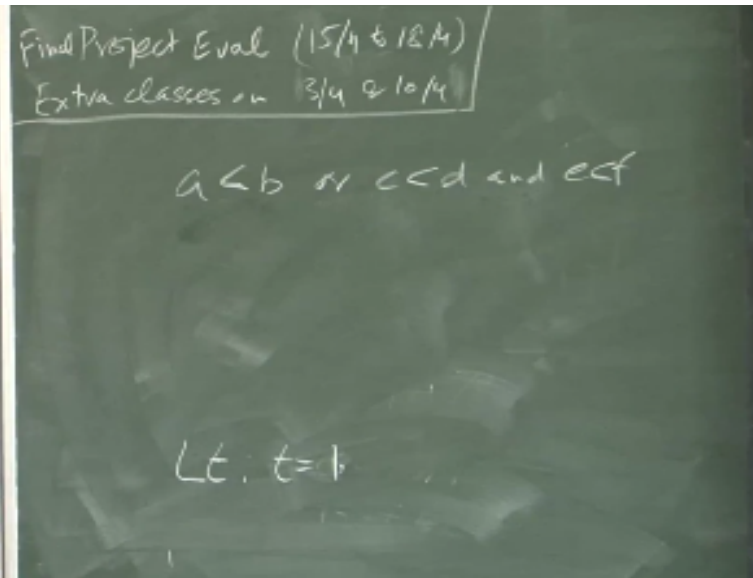 Final Project Eval (15/4 to 18/4)
Extra classes on 3/4 & 10/4
a<b or c<d and e<f
Lt. t=1